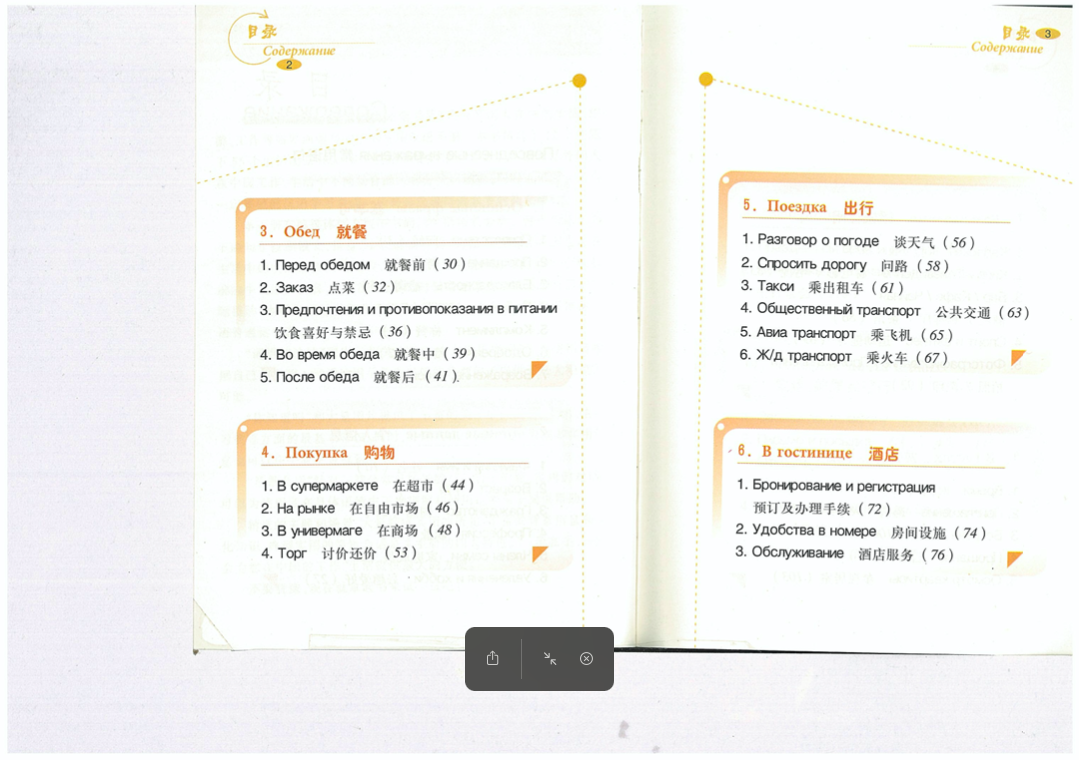 目录
Содержание
2
3. Обед 就餐
1. Перед обедом 就餐前 (30)
2. Заказ 点菜 (32)
3. Предпочтения и противопоказания в питании
饮食喜好与禁忌 (36)
4. Во время обеда 就餐中 (39)
5. После обеда 就餐后 (41).
4. Покупка 购物
1. В супермаркете 在超市 (44)
2. На рынке 在自由市场 (46)
3. В универмаге 在商场 (48)
4. Торг 讨价还价 (53)
目录 3
Содержание
5. Поездка 出行
1. Разговор о погоде 谈天气 (56)
2. Спросить дорогу 问路 (58)
3. Такси 乘出租车 (61)
4. Общественный транспорт 公共交通 (63)
5. Авиа транспорт 乘飞机 (65)
6. Ж/д транспорт 乘火车 (67)
6. В гостинице 酒店
1. Бронирование и регистрация
预订及办理手续 (72)
2. Удобства в номере 房间设施 (74)
3. Обслуживание 酒店服务 (76)